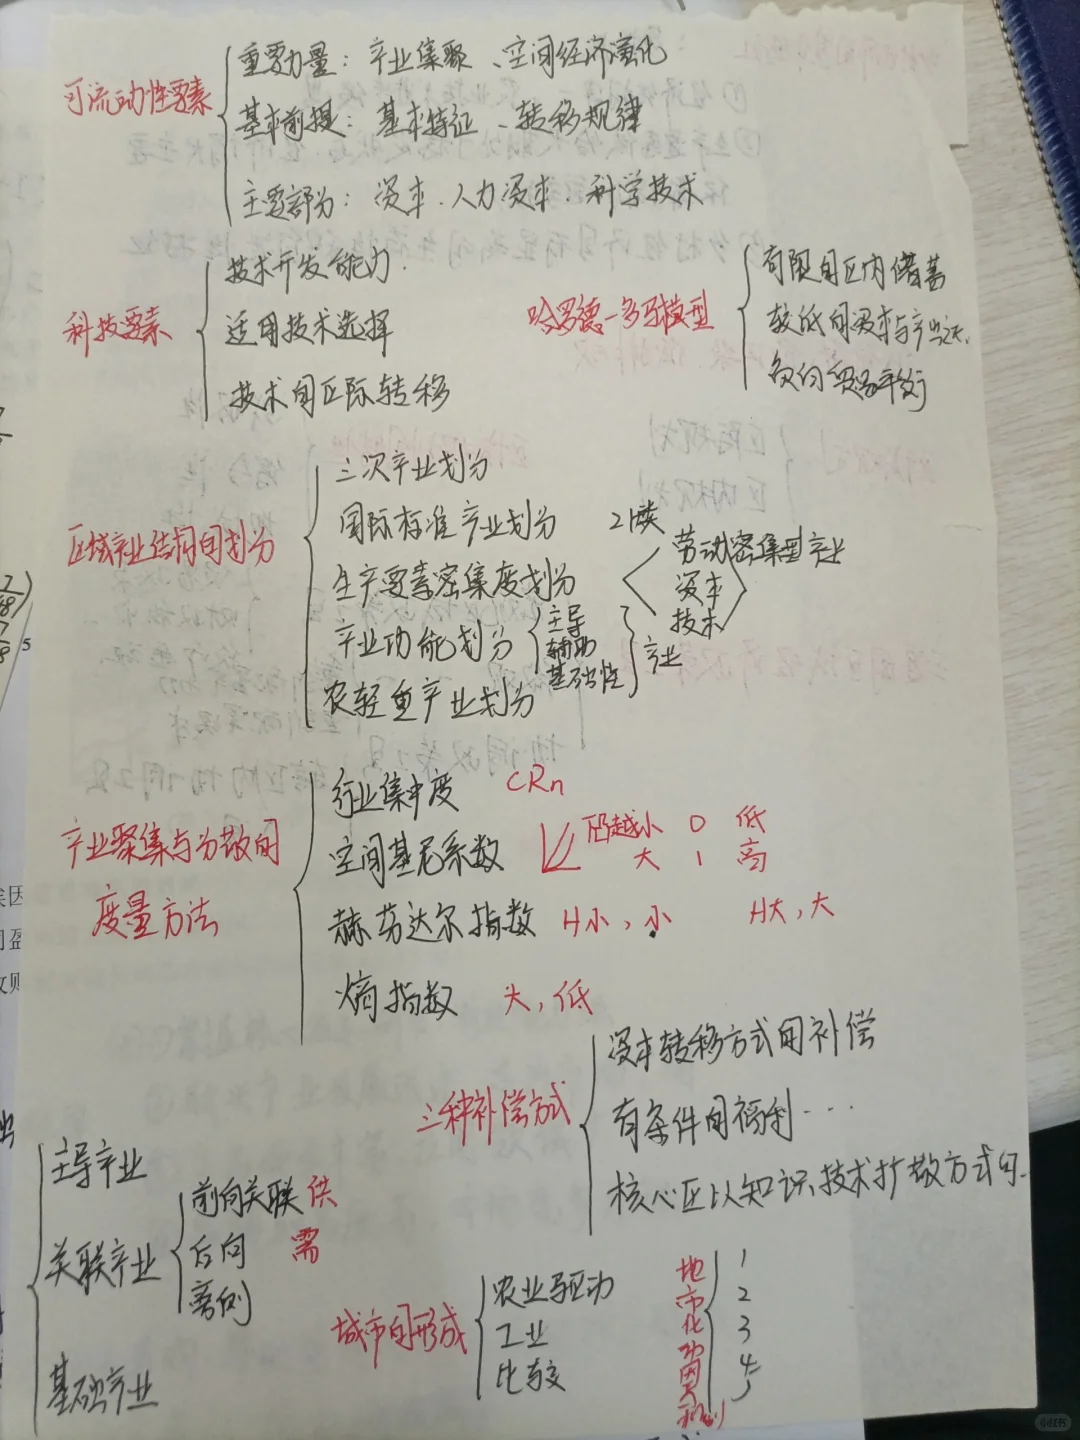 可流动性要素
重要力量：产业集聚、空间经济演化
基本前提：基本特征、转移规律
主要部分：资本、人力资本、科学技术
科技要素
技术开发能力.
适用技术选择
技术的区际转移
哈罗德-多马模型
有限的区内储蓄
较低的资本与产出比.
负的贸易平衡
区域产业结构的划分
三次产业划分
国际标准产业划分 21类
生产要素密集度划分
劳动密集型产业
资本
技术
产业功能划分
主导
辅助
基础性
产业
农轻重产业划分
产业聚集与分散的
度量方法
行业集中度 CRn
空间基尼系数 凸越小 0 低
大 1 高
赫芬达尔指数 H小，小 H大，大
熵指数 大，低
三种补偿方式
资本转移方式的补偿
有条件的福利···
核心区以知识、技术扩散方式
主导产业
关联产业
前向关联 供
后向 需
旁侧
基础产业
城市的形成
农业驱动
工业
比较
1
2
3
4
5